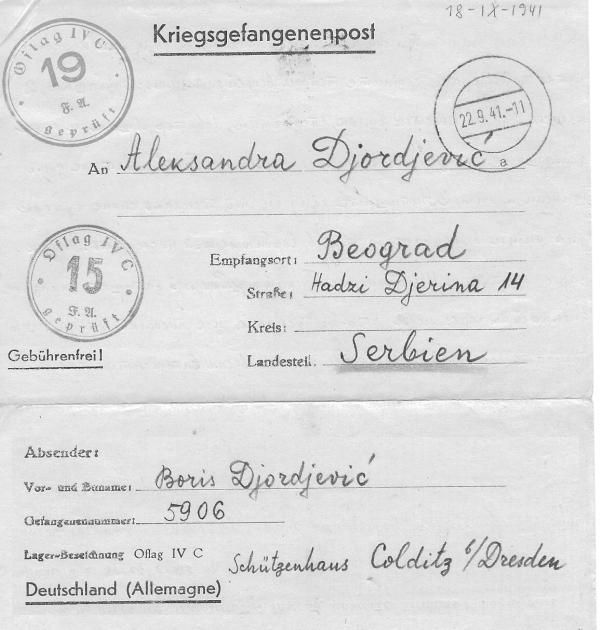 18-IX-1941
Kriegsgefangenenpost
Oflag IV C
19
F. A.
geprüft
22.9.41.-11
a
An Aleksandra Djordjević
Oflag IV C
15
F. A.
geprüft
Empfangsort: Beograd
Straße: Hadzi Djerina 14
Kreis:
Gebührenfrei!
Landesteil: Serbien
Absender:
Vor- und Zuname: Boris Djordjević
Gefangenennummer: 5906
Lager-Bezeichnung Oflag IV C Schützenhaus Colditz b/Dresden
Deutschland (Allemagne)